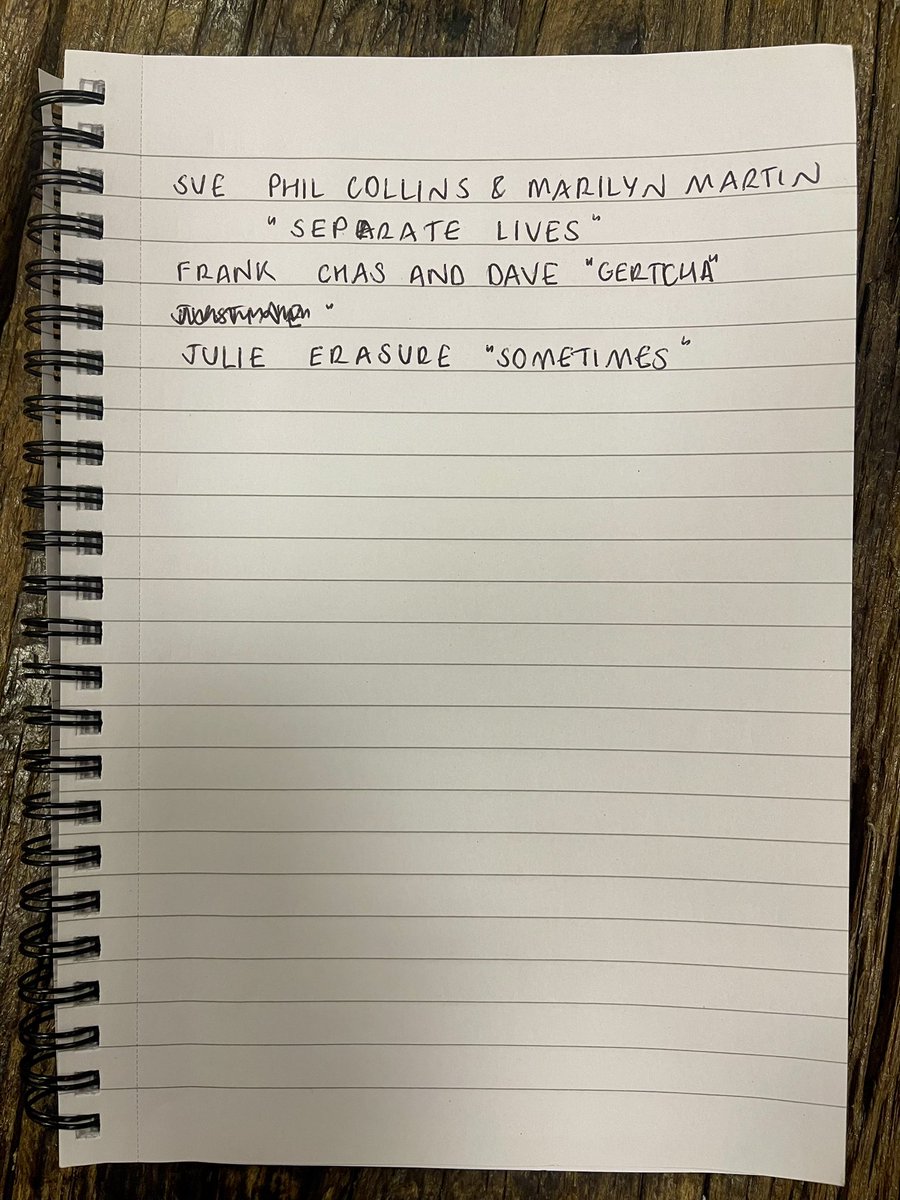 SUE PHIL COLLINS & MARILYN MARTIN
"SEPARATE LIVES"
FRANK CHAS AND DAVE "GERTCHA"
"
JULIE ERASURE "SOMETIMES"